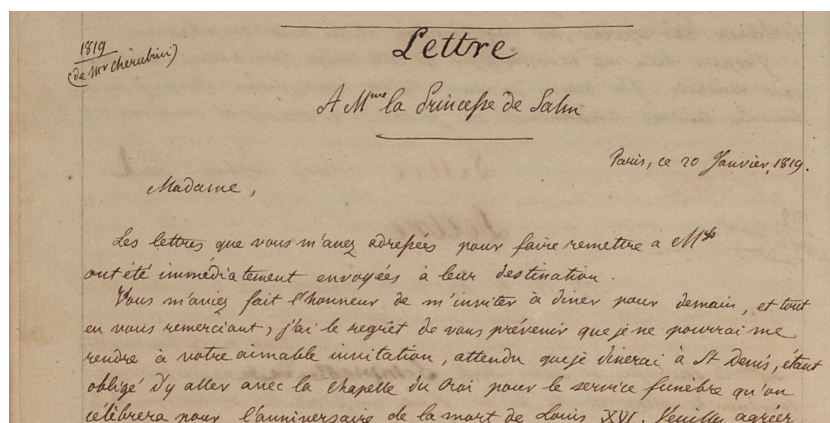 1819
(de Mr Cherubini)
Lettre
A Mme la Princesse de Salm
Paris, ce 20 Janvier, 1819.
Madame,
Les lettres que vous m'avez adressées pour faire remettre a Mrs
ont été immédiatement envoyées à leur destination.
Vous m'aviez fait l'honneur de m'inviter à diner pour demain, et tout
en vous remerciant, j'ai le regret de vous prévenir que je ne pourrai me
rendre à votre aimable invitation, attendu que je dinerai à St Denis, étant
obligé d'y aller avec la chapelle du Roi pour le service funèbre qu'on
célèbrera pour l'anniversaire de la mort de Louis XVI. Veuillez agréer